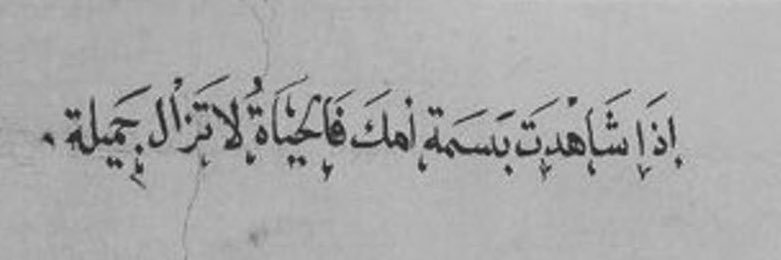 إذا شاهدت بسمة أمك فالحياة لا تزال جميلة .